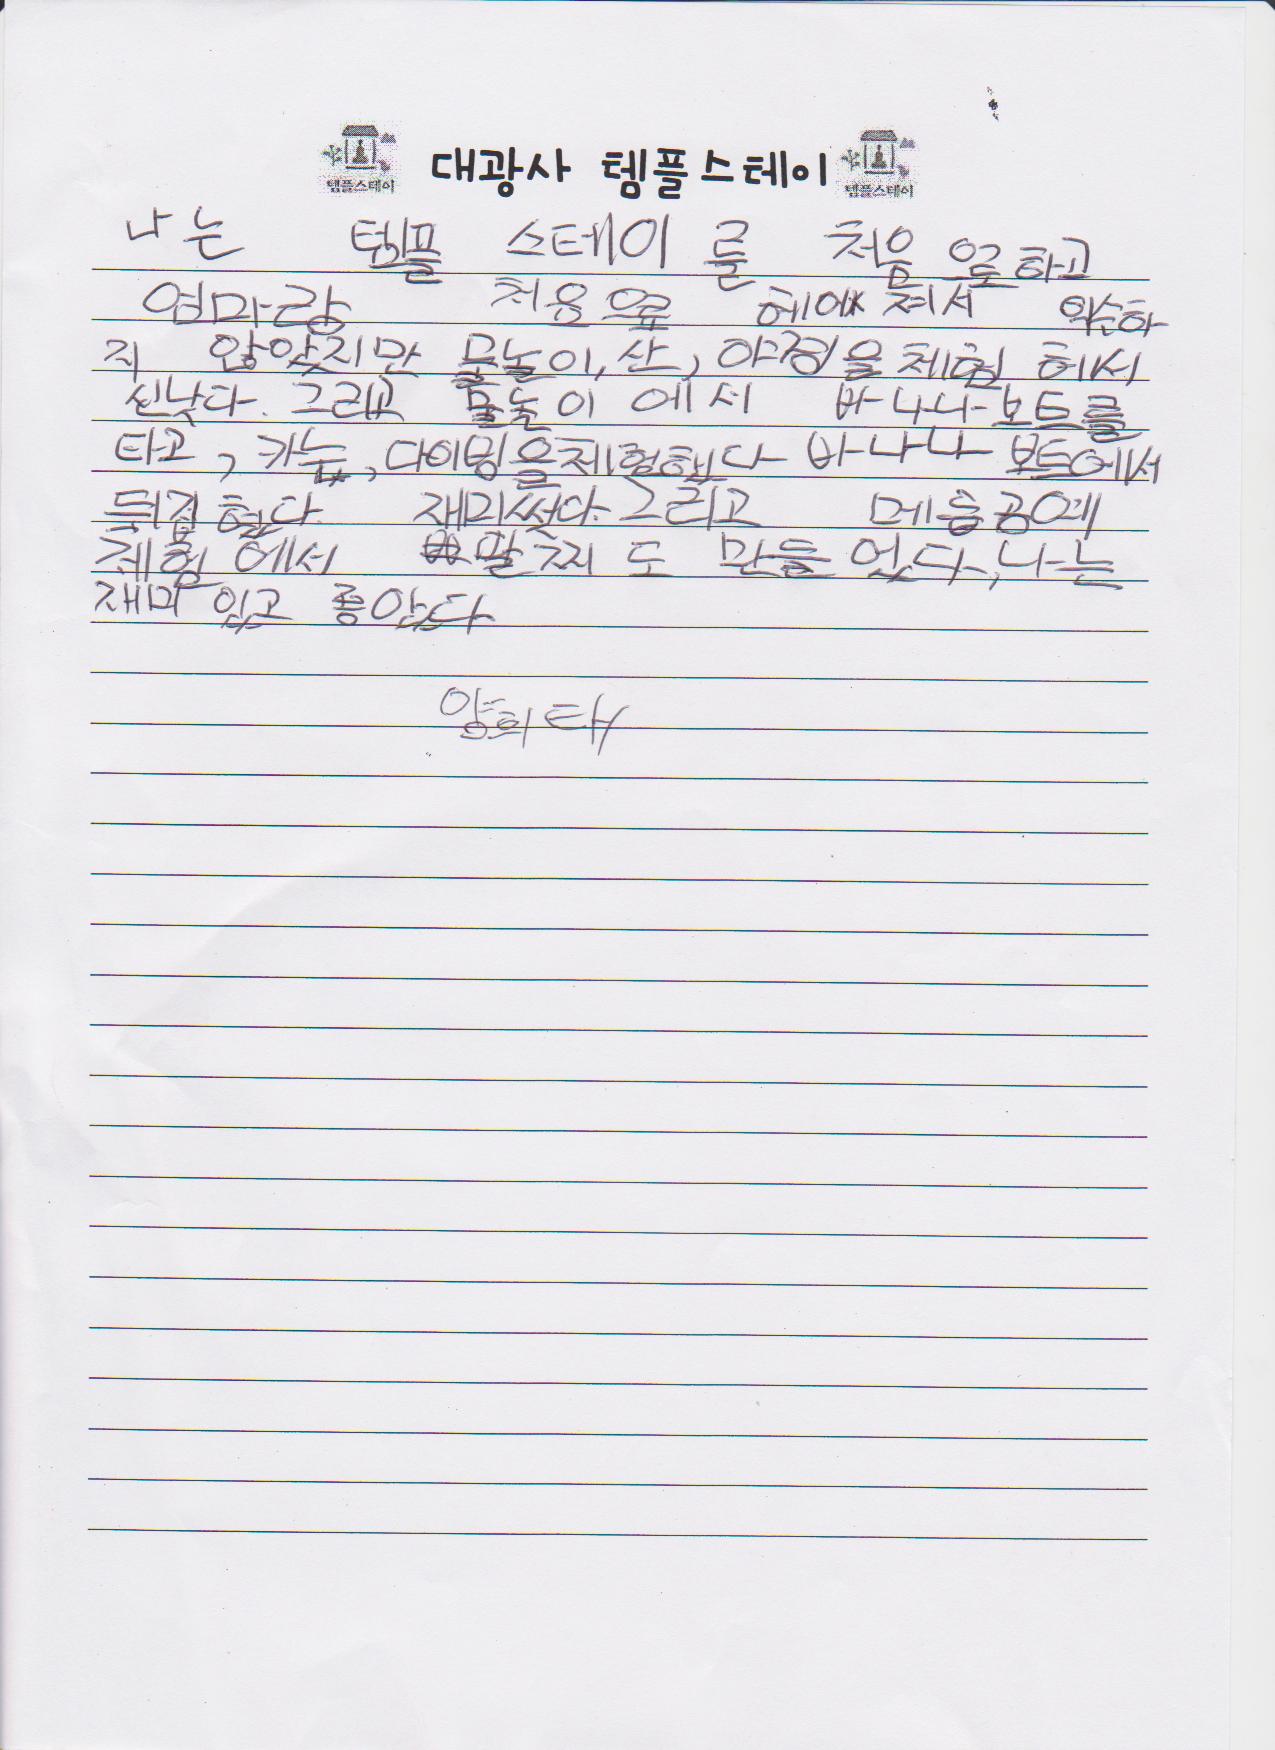 대광사 템플스테이
템플스테이
템플스테이
나는 템플 스테이를 처음 으로하고
엄마랑 처음으로 헤어져서 익숙하
지 않았지만 물놀이, 산, 야경을 체험 해서
신낫다. 그리고 물놀이 에서 바나나보트를
타고, 카눞, 다이빙을체험했다 바나나 보트에서
뒤집혔다. 재미썻다. 그리고 메듬공예
체험에서 팔찌도 만들었다., 나는
재미있고 좋았다
양희태